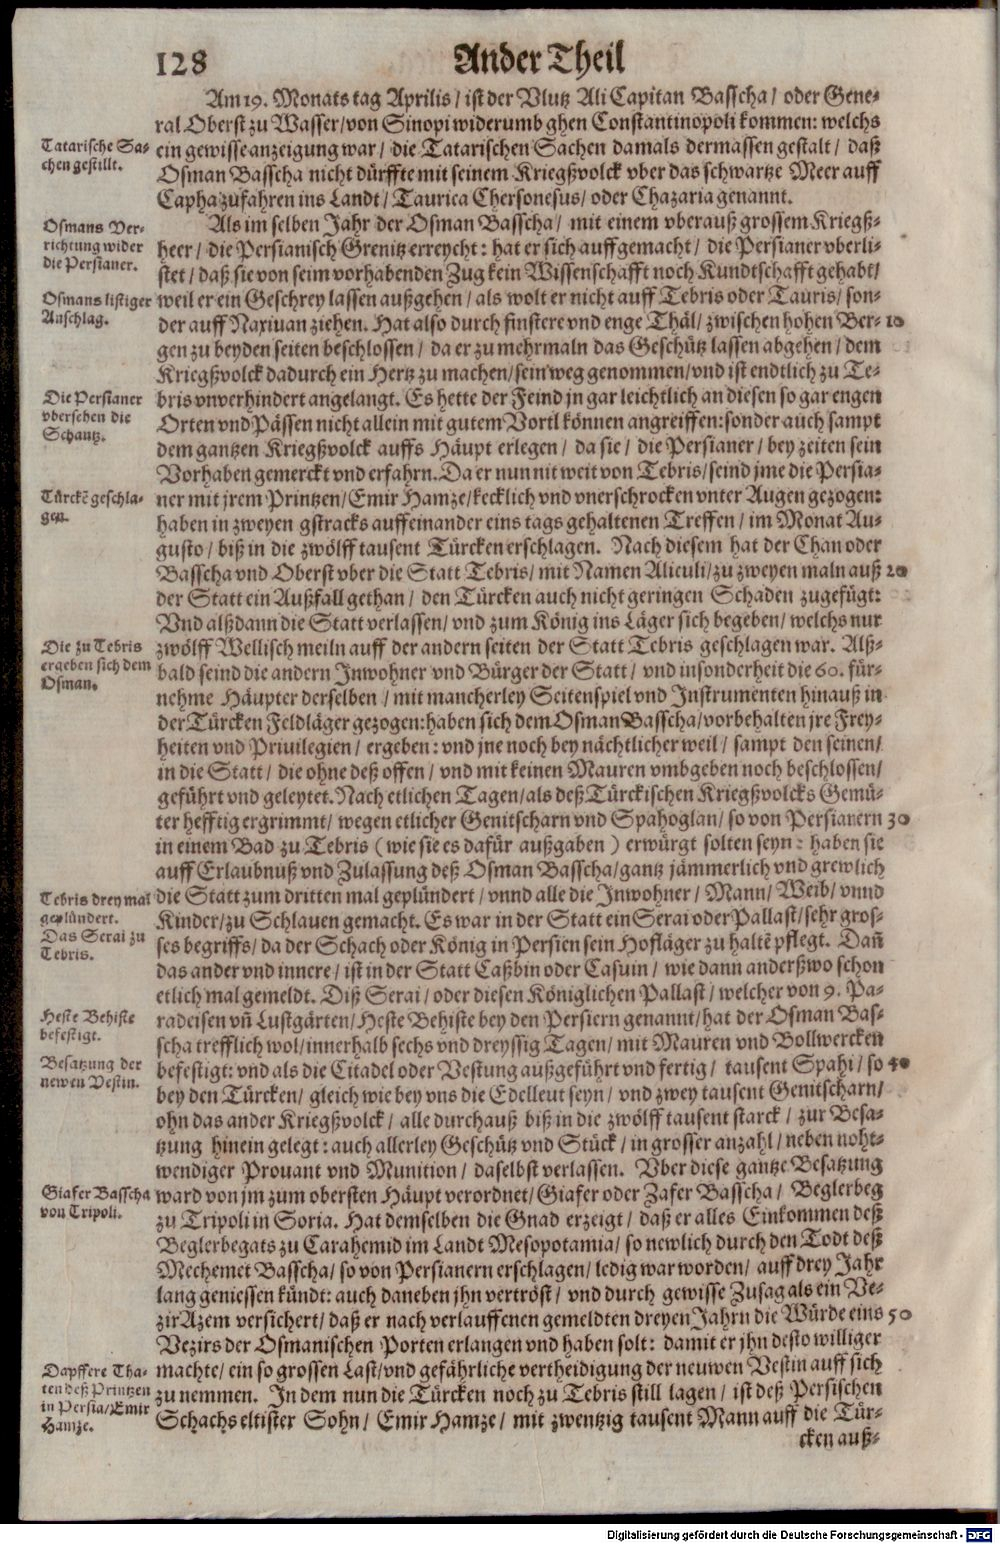 128 Ander Theil
Am 19. Monats tag Aprilis / ist der Vlutz Ali Capitan Basscha / oder Gene-
ral Oberst zu Wasser / von Sinopi widerumb ghen Constantinopoli kommen: welchs
Tatarische Sa-
chen gestillt.
ein gewisse anzeigung war / die Tatarischen Sachen damals dermassen gestalt / daß
Osman Basscha nicht dürffte mit seinem Kriegßvolck vber das schwartze Meer auff
Capha zufahren ins Landt / Taurica Chersonesus / oder Chazaria genannt.
Osmans Ver-
richtung wider
die Persianer.
Als im selben Jahr der Osman Basscha / mit einem vberauß grossem Kriegß-
heer / die Persianisch Grenitz erreycht: hat er sich auffgemacht / die Persianer vberli-
stet / daß sie von seim vorhabenden Zug kein Wissenschafft noch Kundtschafft gehabt /
Osmans listiger
Anschlag.
weil er ein Geschrey lassen außgehen / als wolt er nicht auff Tebris oder Tauris / son-
der auff Naxiuan ziehen. Hat also durch finstere vnd enge Thäl / zwischen hohen Ber- 10
gen zu beyden seiten beschlossen / da er zu mehrmaln das Geschütz lassen abgehen / dem
Kriegßvolck dadurch ein Hertz zu machen / sein weg genommen / vnd ist endtlich zu Te-
Die Persianer
vbersehen die
Schantz.
bris vnverhindert angelangt. Es hette der Feind jn gar leichtlich an diesen so gar engen
Orten vnd Pässen nicht allein mit gutem Vortl können angreiffen: sonder auch sampt
dem gantzen Kriegßvolck auffs Häupt erlegen / da sie / die Persianer / bey zeiten sein
Vorhaben gemerckt vnd erfahrn. Da er nun nit weit von Tebris / seind jme die Persia-
Türckẽ geschla-
gen.
ner mit jrem Printzen / Emir Hamze / kecklich vnd vnerschrocken vnter Augen gezogen:
haben in zweyen gstracks auffeinander eins tags gehaltenen Treffen / im Monat Au-
gusto / biß in die zwölff tausent Türcken erschlagen. Nach diesem hat der Chan oder
Basscha vnd Oberst vber die Statt Tebris / mit Namen Aliculi / zu zweyen maln auß 20
der Statt ein Außfall gethan / den Türcken auch nicht geringen Schaden zugefügt:
Vnd alßdann die Statt verlassen / vnd zum König ins Läger sich begeben / welchs nur
Die zu Tebris
ergeben sich dem
Osman.
zwölff Wellisch meiln auff der andern seiten der Statt Tebris geschlagen war. Alß-
bald seind die andern Inwohner vnd Bürger der Statt / vnd insonderheit die 60. für-
nehme Häupter derselben / mit mancherley Seitenspiel vnd Instrumenten hinauß in
der Türcken Feldläger gezogen: haben sich dem Osman Basscha / vorbehalten jre Frey-
heiten vnd Priuilegien / ergeben: vnd jne noch bey nächtlicher weil / sampt den seinen /
in die Statt / die ohne deß offen / vnd mit keinen Mauren vmbgeben noch beschlossen /
geführt vnd geleytet. Nach etlichen Tagen / als deß Türckischen Kriegßvolcks Gemü-
ter hefftig ergrimmt / wegen etlicher Genitscharn vnd Spahoglan / so von Persianern 30
in einem Bad zu Tebris ( wie sie es dafür außgaben ) erwürgt solten seyn: haben sie
auff Erlaubnuß vnd Zulassung deß Osman Basscha / gantz jämmerlich vnd grewlich
Tebris drey mal
geplündert.
die Statt zum dritten mal geplündert / vnnd alle die Inwohner / Mann / Weib / vnnd
Kinder / zu Schlauen gemacht. Es war in der Statt ein Serai oder Pallast / sehr gros-
Das Serai zu
Tebris.
ses begriffs / da der Schach oder König in Persien sein Hofläger zu haltẽ pflegt. Dañ
das ander vnd innere / ist in der Statt Caßbin oder Casuin / wie dann anderßwo schon
etlich mal gemeldt. Diß Serai / oder diesen Königlichen Pallast / welcher von 9. Pa-
Heste Behiste
befestigt.
radeisen vñ Lustgärten / Heste Behiste bey den Persiern genannt / hat der Osman Bas-
scha trefflich wol / innerhalb sechs vnd dreyssig Tagen / mit Mauren vnd Bollwercken
Besatzung der
newen Vestin.
befestigt: vnd als die Citadel oder Vestung außgeführt vnd fertig / tausent Spahi / so 40
bey den Türcken / gleich wie bey vns die Edelleut seyn / vnd zwey tausent Genitscharn /
ohn das ander Kriegßvolck / alle durchauß biß in die zwölff tausent starck / zur Besa-
tzung hinein gelegt: auch allerley Geschütz vnd Stück / in grosser anzahl / neben noht-
wendiger Prouant vnd Munition / daselbst verlassen. Vber diese gantze Besatzung
Giafer Basscha
von Tripoli.
ward von jm zum obersten Häupt verordnet / Giafer oder Zafer Basscha / Beglerbeg
zu Tripoli in Soria. Hat demselben die Gnad erzeigt / daß er alles Einkommen deß
Beglerbegats zu Carahemid im Landt Mesopotamia / so newlich durch den Todt deß
Mechemet Basscha / so von Persianern erschlagen / ledig war worden / auff drey Jahr
lang geniessen kündt: auch daneben jhn vertröst / vnd durch gewisse Zusag als ein Ve-
zir Azem versichert / daß er nach verlauffenen gemeldten dreyen Jahrn die Würde eins 50
Vezirs der Osmanischen Porten erlangen vnd haben solt: damit er jhn desto williger
Dapffere Tha-
ten deß Printzen
in Persia / Emir
Hamze.
machte / ein so grossen Last / vnd gefährliche vertheidigung der neuwen Vestin auff sich
zu nemmen. In dem nun die Türcken noch zu Tebris still lagen / ist deß Persischen
Schachs eltister Sohn / Emir Hamze / mit zwentzig tausent Mann auff die Tür-
cken auß-
Digitalisierung gefördert durch die Deutsche Forschungsgemeinschaft - DFG